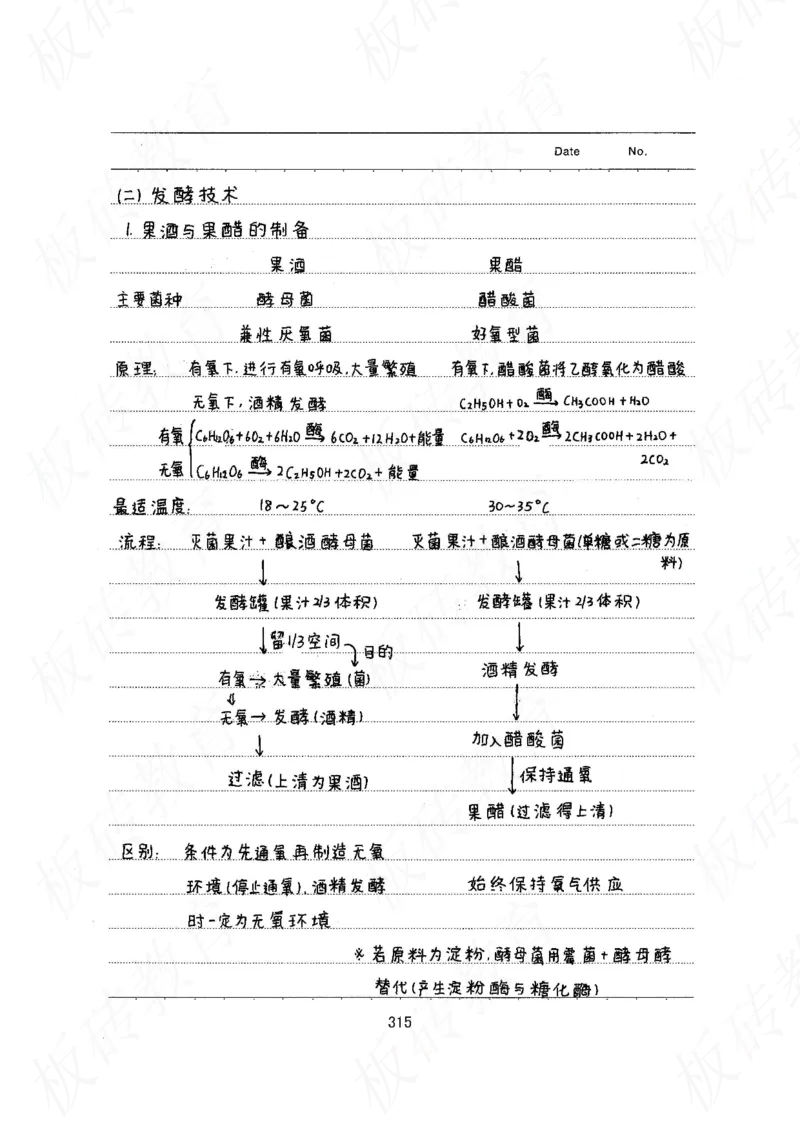 Date No.
(二) 发酵技术
1. 果酒与果醋的制备
果酒 果醋
主要菌种 酵母菌 醋酸菌
兼性厌氧菌 好氧型菌
原理: 有氧下,进行有氧呼吸,大量繁殖 有氧下,醋酸菌将乙醇氧化为醋酸
无氧下,酒精发酵 C₂H₅OH+O₂ —酶→ CH₃COOH+H₂O
有氧 C₆H₁₂O₆+6O₂+6H₂O —酶→ 6CO₂+12H₂O+能量 C₆H₁₂O₆+2O₂ —酶→ 2CH₃COOH+2H₂O+
2CO₂
无氧 C₆H₁₂O₆ —酶→ 2C₂H₅OH+2CO₂+能量
最适温度: 18~25°C 30~35°C
流程: 灭菌果汁+酿酒酵母菌 灭菌果汁+酿酒酵母菌(单糖或二糖为原
料)
↓ ↓
发酵罐(果汁2/3体积) 发酵罐(果汁2/3体积)
↓留1/3空间 目的 ↓
有氧→大量繁殖(菌) 酒精发酵
⇓ ↓
无氧→发酵(酒精)
↓ 加入醋酸菌
过滤(上清为果酒) ↓保持通氧
果醋(过滤得上清)
区别: 条件为先通氧再制造无氧
环境(停止通氧),酒精发酵 始终保持氧气供应
时一定为无氧环境
※若原料为淀粉,酵母菌用霉菌+酵母酵
替代(产生淀粉酶与糖化酶)
315
板砖教育